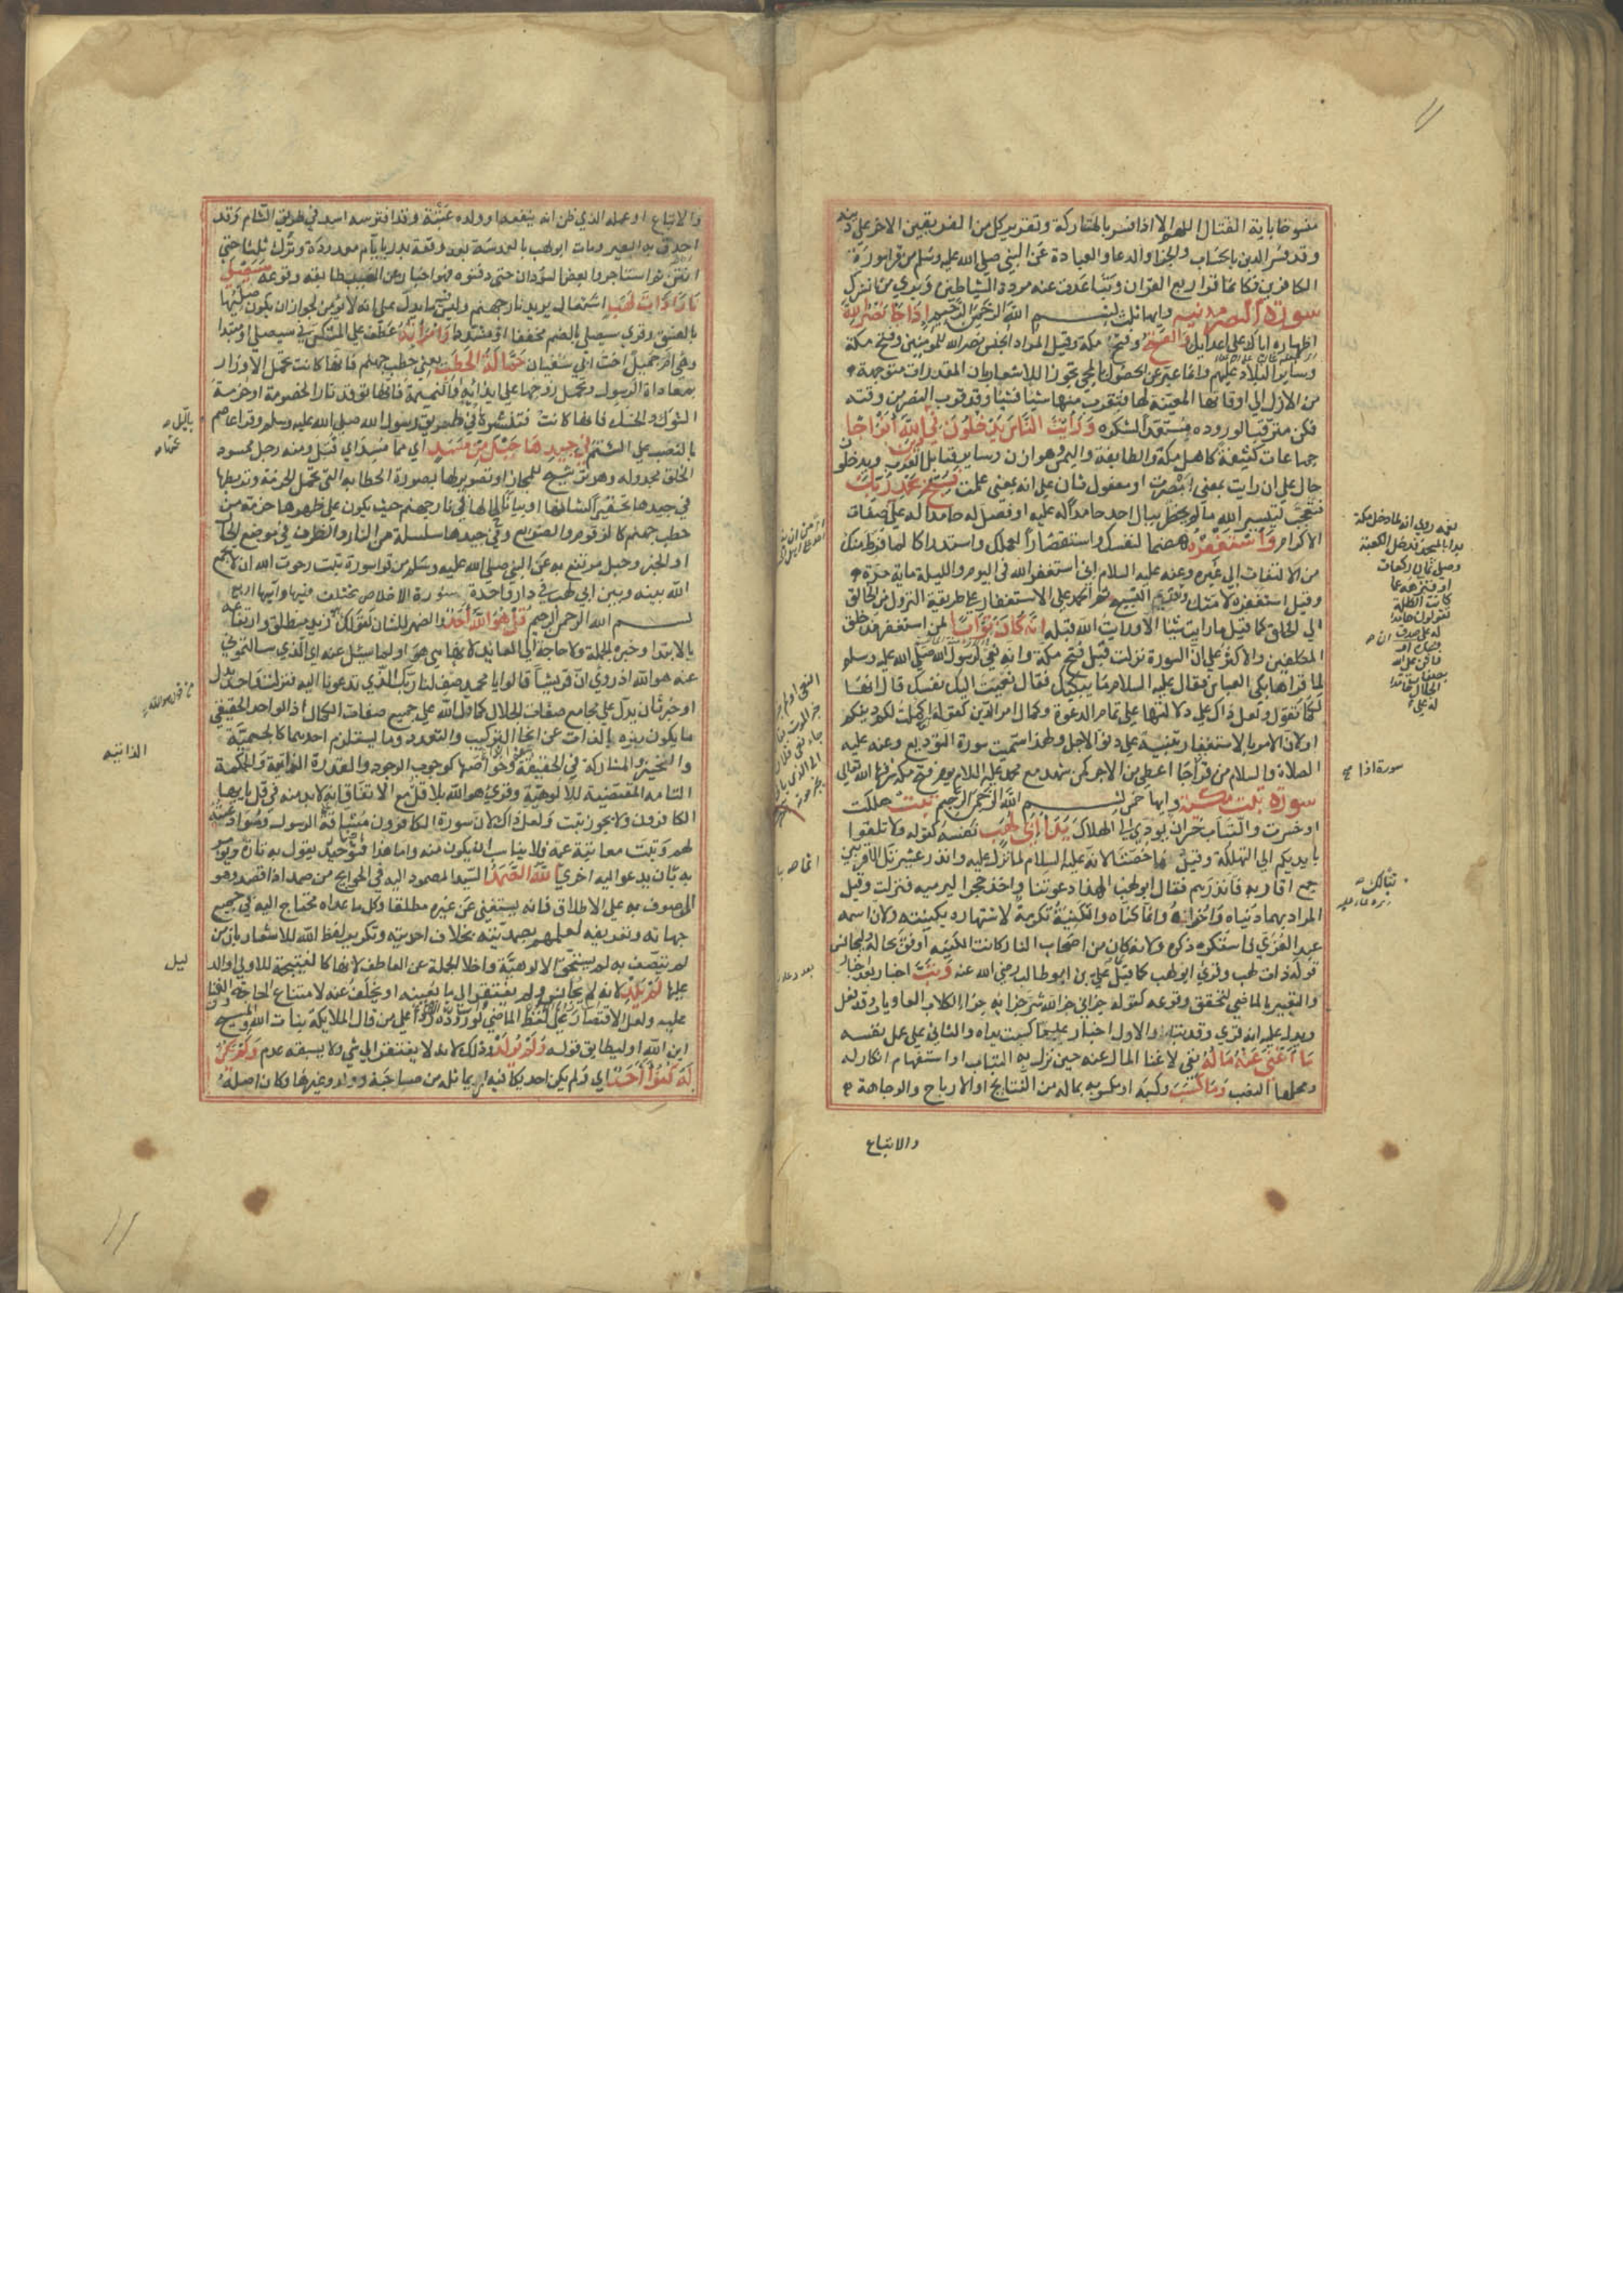 منسوخا باية القتال اللهم الا اذا فسر بالمتاركة وتقرير كل من الفريقين الاخر على دينه
وقد فسر الدين بالحساب والجزا والدعا والعبادة عن النبي صلى الله عليه وسلم من قرا سورة
الكافرين فكانما قرا ربع القران وتباعدت عنه مردة الشياطين وبري من الشرك
سورة النصر مدنية وايها ثلث بسم الله الرحمن الرحيم اذا جا نصر الله
اظهاره اياك على اعدايك والفتح وفتح مكة وقيل المراد جنس نصر الله للمومنين وفتح مكة
وساير البلاد عليهم وانما عبر عن الحصول بالمجي تجوزا للاشعار بان المقدرات متوجهة
من الازل الى اوقاتها المعينة لها فتقرب منها شيا فشيا وقد قرب النصر من وقته
فكن مترقبا لوروده مستعدا لشكره ورايت الناس يدخلون في دين الله افواجا
جماعات كثيفة كاهل مكة والطايف واليمن وهوازن وساير قبايل العرب ويدخلون
حال على ان رايت بمعنى ابصرت او مفعول ثان على انه بمعنى علمت فسبح بحمد ربك
فتعجب لتيسير الله ما لم يخطر ببال احد حامدا له عليه او فصل له حامدا له على صفات
الاكرام واستغفره هضما لنفسك واستقصارا لعملك واستدراكا لما فرط منك
من الالتفات الى غيره وعنه عليه السلام اني استغفر الله في اليوم والليلة ماية مرة
وقيل استغفره لامتك وتقديم التسبيح ثم الحمد على الاستغفار على طريقة النزول من الخالق
الى الخلق كما قيل ما رايت شيا الا ورايت الله قبله انه كان توابا لمن استغفر مذ خلق
المكلفين والاكثر على ان السورة نزلت قبل فتح مكة وانه نعي لرسول الله صلى الله عليه وسلم
لما قراها بكى العباس فقال عليه السلام ما يبكيك فقال نعيت اليك نفسك قال انها
لكما تقول ولعل ذاك على دلالتها على تمام الدعوة وكمال امر الدين كقوله اكملت لكم دينكم
او لان الامر بالاستغفار تنبيه على دنو الاجل ولهذا سميت سورة التوديع وعنه عليه
الصلاة والسلام من قرا اذا جا اعطي من الاجر كمن شهد مع محمد عليه السلام يوم فتح مكة شرفها الله تعالى
سورة تبت مكية وايها خمس بسم الله الرحمن الرحيم تبت هلكت
او خسرت والتباب خسران يودي الى الهلاك يدا ابي لهب نفسه كقوله ولا تلقوا
بايديكم الى التهلكة وقيل انما خصتا لانه عليه السلام لما نزل عليه وانذر عشيرتك الاقربين
جمع اقاربه فانذرهم فقال ابو لهب الهذا دعوتنا واخذ حجرا ليرميه فنزلت وقيل
المراد بهما دنياه واخراه وانما كناه والتكنية تكرمة لاشتهاره بكنيته ولان اسمه
عبد العزى فاستكره ذكره ولانه كان من اصحاب النار كانت الكنية اوفق بحاله او ليجانس
قوله ذات لهب وقري ابو لهب كما قيل على بن ابو طالب رضي الله عنه وتب اخبار بعد اخبار
والتعبير بالماضي لتحقق وقوعه كقوله جزاني جزاه الله شر جزائه جزاء الكلاب العاويات وقد فعل
ويدل عليه انه قري وقد تب او الاول اخبار عما كسبت يداه والثاني على عمل نفسه
ما اغنى عنه ماله نفي لاغنا المال عنه حين نزل به التباب او استفهام انكار له
ومحلها النصب وما كسب وكسبه او مكسوبه بماله من النتايج والارباح والوجاهة
والاتباع
والاتباع او عمله الذي ظن انه ينفعه او ولده عتبة وقد افترسه اسد في طريق الشام وقد
احدق به العير ومات ابو لهب بالعدسة بعد وقعة بدر بايام معدودة وترك ثلثا حتى
انتن ثم استاجروا بعض السودان حتى دفنوه فهو اخبار عن الغيب طابقه وقوعه سيصلى
نارا ذات لهب اشتعال يريد نار جهنم وليس فيه ما يدل على انه لا يومن لجواز ان يكون صليها
بالفسق وقري سيصلى بالضم مخففا ومشددا وامراته عطف على المستكن في سيصلى او مبتدا
وهي ام جميل اخت ابي سفيان حمالة الحطب يعني حطب جهنم فانها كانت تحمل الاوزار
بمعاداة الرسول وتحمل زوجها على ايذائه او النميمة فانها توقد نار الخصومة او حزمة
الشوك والحسك فانها كانت تنثرها في طريق رسول الله صلى الله عليه وسلم وقرا عاصم
بالنصب على الشتم في جيدها حبل من مسد اي مما مسد اي فتل ومنه رجل ممسود
الخلق مجدوله وهو ترشيح للمجاز او تصوير لها بصورة الحطابة التي تحمل الحزمة وتربطها
في جيدها تحقيرا لشانها او بيانا لحالها في نار جهنم حيث يكون على ظهرها حزمة من
حطب جهنم كالزقوم والضريع وفي جيدها سلسلة من النار والظرف في موضع الحال
او الخبر وحبل مرتفع به عن النبي صلى الله عليه وسلم من قرا سورة تبت رجوت الله ان لا يجمع
الله بينه وبين ابي لهب في دار واحدة سورة الاخلاص مختلف فيها وآيها اربع
بسم الله الرحمن الرحيم قل هو الله احد الضمير للشان كقولك هو زيد منطلق وارتفاعه
بالابتدا وخبره الجملة ولا حاجة الى العايد لانها هي هو او لما سئل عنه اي الذي سالتموني
عنه هو الله اذ روي ان قريشا قالوا يا محمد صف لنا ربك الذي تدعونا اليه فنزلت واحد بدل
او خبر ثان يدل على مجامع صفات الجلال كما دل الله على جميع صفات الكمال اذ الواحد الحقيقي
ما يكون منزه الذات عن انحا التركيب والتعدد وما يستلزم احدهما كالجسمية
والتحيز والمشاركة في الحقيقة وخواصها كوجوب الوجود والقدرة الذاتية والحكمة
التامة المقتضية للالوهية وقري هو الله بلا قل مع الاتفاق انه لا بد منه في قل يا ايها
الكافرون ولا يجوز تبت ولعل ذاك لان سورة الكافرون مشاقة الرسول او موادعته
لهم وتبت معاتبة عمه فلا يناسب ان يكون منه واما هذا فتوحيد يقول به تارة ويومر
به بان يدعو اليه اخرى الله الصمد السيد المصمود اليه في الحوايج من صمد اذا قصد وهو
الموصوف به على الاطلاق فانه يستغني عن غيره مطلقا وكل ما عداه محتاج اليه في جميع
جهاته وتعريفه لعلمهم بصمديته بخلاف احديته وتكرير لفظ الله للاشعار بان من
لم يتصف به لم يستحق الالوهية واخلا الجملة عن العاطف لانها كالنتيجة للاولى او الدليل
عليها لم يلد لانه لم يجانس ولم يفتقر الى ما يعينه او يخلف عنه لامتناع الحاجة والفنا
عليه ولعل الاقتصار على لفظ الماضي لوروده ردا على من قال الملايكة بنات الله او المسيح
ابن الله او ليطابق قوله ولم يولد وذلك لانه لا يفتقر الى شي ولا يسبقه عدم ولم يكن
له كفوا احد اي ولم يكن احد يكافيه او يماثله من صاحبة وولد وغيرها وكان اصله